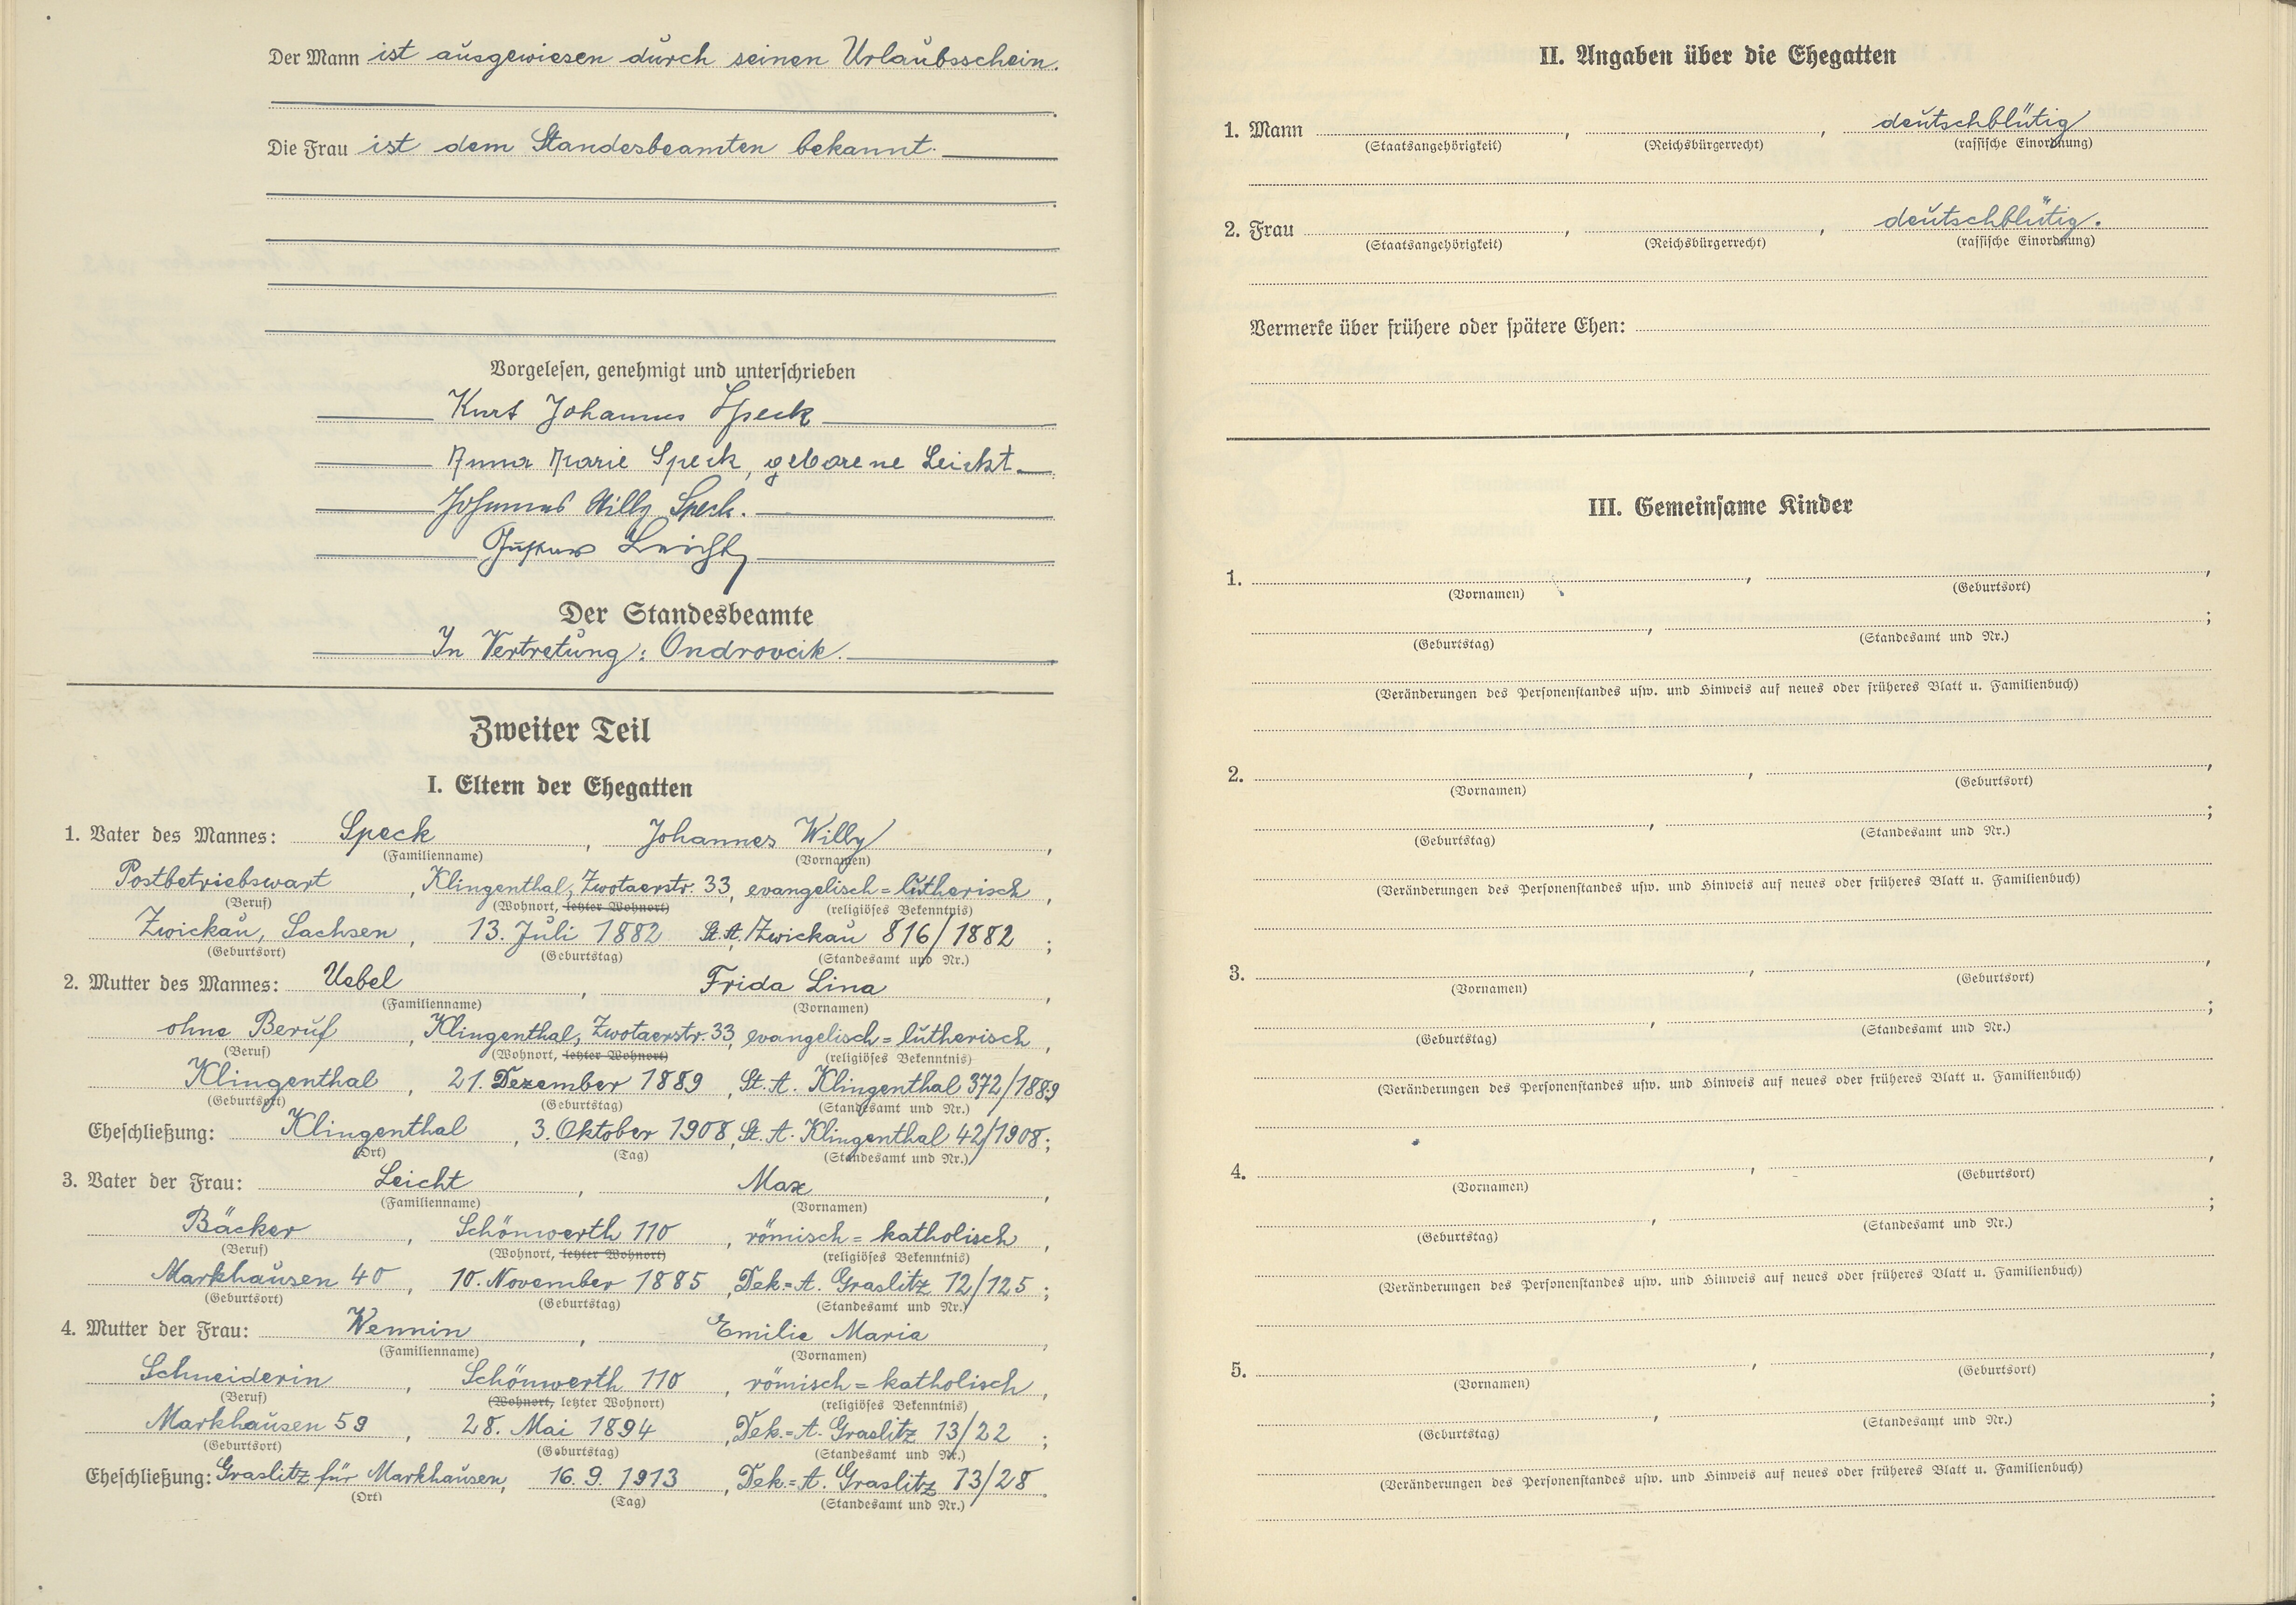 Der Mann ist ausgewiesen durch seinen Urlaubsschein.
Die Frau ist dem Standesbeamten bekannt.
Vorgelesen, genehmigt und unterschrieben
Kurt Johannes Speck
Anna Marie Speck, geborene Leicht
Johannes Willy Speck.
Gustav Leicht
Der Standesbeamte
In Vertretung: Ondrovcik.
Zweiter Teil
I. Eltern der Ehegatten
1. Vater des Mannes: Speck, Johannes Willy,
(Familienname) (Vornamen)
Postbetriebswart, Klingenthal, Zwotaerstr. 33, evangelisch=lutherisch,
(Beruf) (Wohnort, letzter Wohnort) (religiöses Bekenntnis)
Zwickau, Sachsen, 13. Juli 1882 St. A. Zwickau 816/1882;
(Geburtsort) (Geburtstag) (Standesamt und Nr.)
2. Mutter des Mannes: Uebel, Frida Lina,
(Familienname) (Vornamen)
ohne Beruf, Klingenthal, Zwotaerstr. 33, evangelisch=lutherisch,
(Beruf) (Wohnort, letzter Wohnort) (religiöses Bekenntnis)
Klingenthal, 21. Dezember 1889, St. A. Klingenthal 372/1889
(Geburtsort) (Geburtstag) (Standesamt und Nr.)
Eheschließung: Klingenthal, 3. Oktober 1908, St. A. Klingenthal 42/1908;
(Ort) (Tag) (Standesamt und Nr.)
3. Vater der Frau: Leicht, Max,
(Familienname) (Vornamen)
Bäcker, Schönwerth 110, römisch=katholisch,
(Beruf) (Wohnort, letzter Wohnort) (religiöses Bekenntnis)
Markhausen 40, 10. November 1885, Dek.=A. Graslitz 12/125;
(Geburtsort) (Geburtstag) (Standesamt und Nr.)
4. Mutter der Frau: Wennin, Emilie Maria,
(Familienname) (Vornamen)
Schneiderin, Schönwerth 110, römisch=katholisch,
(Beruf) (Wohnort, letzter Wohnort) (religiöses Bekenntnis)
Markhausen 59, 28. Mai 1894, Dek.=A. Graslitz 13/22;
(Geburtsort) (Geburtstag) (Standesamt und Nr.)
Eheschließung: Graslitz für Markhausen, 16. 9. 1913, Dek.=A. Graslitz 13/28.
(Ort) (Tag) (Standesamt und Nr.)
II. Angaben über die Ehegatten
1. Mann , , deutschblütig
(Staatsangehörigkeit) (Reichsbürgerrecht) (rassische Einordnung)
2. Frau , , deutschblütig.
(Staatsangehörigkeit) (Reichsbürgerrecht) (rassische Einordnung)
Vermerke über frühere oder spätere Ehen:
III. Gemeinsame Kinder
1. , ,
(Vornamen) (Geburtsort)
, ;
(Geburtstag) (Standesamt und Nr.)
(Veränderungen des Personenstandes usw. und Hinweis auf neues oder früheres Blatt u. Familienbuch)
2. , ,
(Vornamen) (Geburtsort)
, ;
(Geburtstag) (Standesamt und Nr.)
(Veränderungen des Personenstandes usw. und Hinweis auf neues oder früheres Blatt u. Familienbuch)
3. , ,
(Vornamen) (Geburtsort)
, ;
(Geburtstag) (Standesamt und Nr.)
(Veränderungen des Personenstandes usw. und Hinweis auf neues oder früheres Blatt u. Familienbuch)
4. , ,
(Vornamen) (Geburtsort)
, ;
(Geburtstag) (Standesamt und Nr.)
(Veränderungen des Personenstandes usw. und Hinweis auf neues oder früheres Blatt u. Familienbuch)
5. , ,
(Vornamen) (Geburtsort)
, ;
(Geburtstag) (Standesamt und Nr.)
(Veränderungen des Personenstandes usw. und Hinweis auf neues oder früheres Blatt u. Familienbuch)